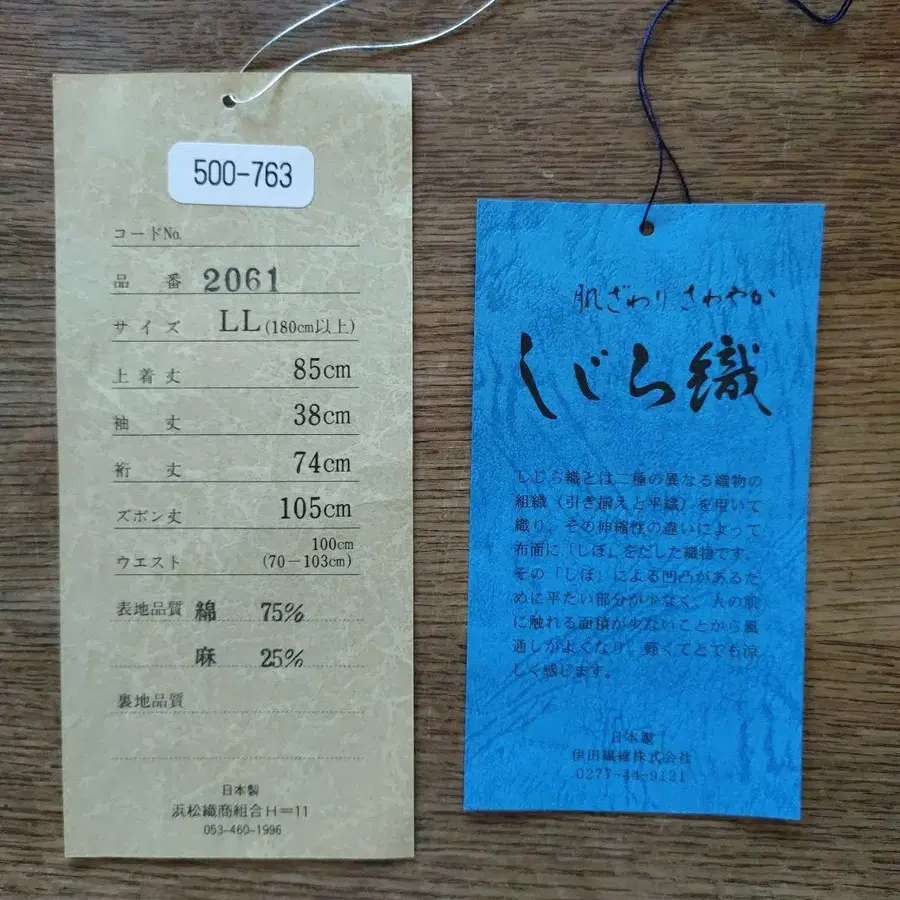 500-763
コードNo.
品番 2061
サイズ LL(180cm以上)
上着丈 85cm
袖丈 38cm
裄丈 74cm
ズボン丈 105cm
ウエスト 100cm
(70−103cm)
表地品質 綿 75%
麻 25%
裏地品質
日本製
浜松織商組合H＝11
053-460-1996
肌ざわりさわやか
しじら織
しじら織とは二種の異なる織物の
組織（引き揃えと平織）を用いて
織り、その伸縮性の違いによって
布面に「しぼ」をだした織物です。
その「しぼ」による凹凸があるた
めに平たい部分が少なく、人の肌
に触れる面積が少ないことから風
通しがよくなり、軽くてとても涼
しく感じます。
日本製
伊田繊維株式会社
0277-44-9121